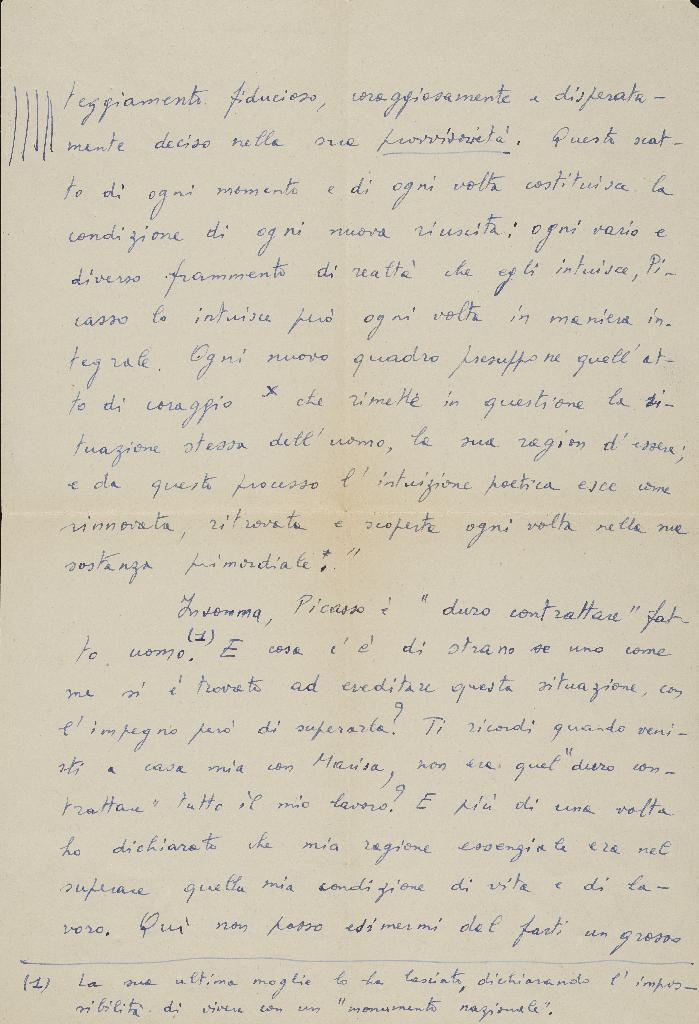 teggiamento fiducioso, coraggiosamente e disperata-
mente deciso nella sua provvisorietà. Questo scat-
to di ogni momento e di ogni volta costituisce la
condizione di ogni nuova riuscita: ogni vario e
diverso frammento di realtà che egli intuisce, Pi-
casso lo intuisce però ogni volta in maniera in-
tegrale. Ogni nuovo quadro presuppone quell'at-
to di coraggio x che rimette in questione la si-
tuazione stessa dell'uomo, la sua ragion d'essere;
e da questo processo l'intuizione poetica esce come
rinnovata, ritrovata e scoperta ogni volta nella sua
sostanza primordiale."
Insomma, Picasso è "duro contrattare" fat-
to uomo.(1) E cosa c'è di strano se uno come
me si è trovato ad ereditare questa situazione, con
l'impegno però di superarla? Ti ricordi quando veni-
sti a casa mia con Marisa, non era quel "duro con-
trattare" tutto il mio lavoro? E più di una volta
ho dichiarato che mia ragione essenziale era nel
superare quella mia condizione di vita e di la-
voro. Quì non posso esimermi dal farti un grosso
(1) La sua ultima moglie lo ha lasciato, dichiarando l'impos-
sibilità di vivere con un "monumento nazionale".